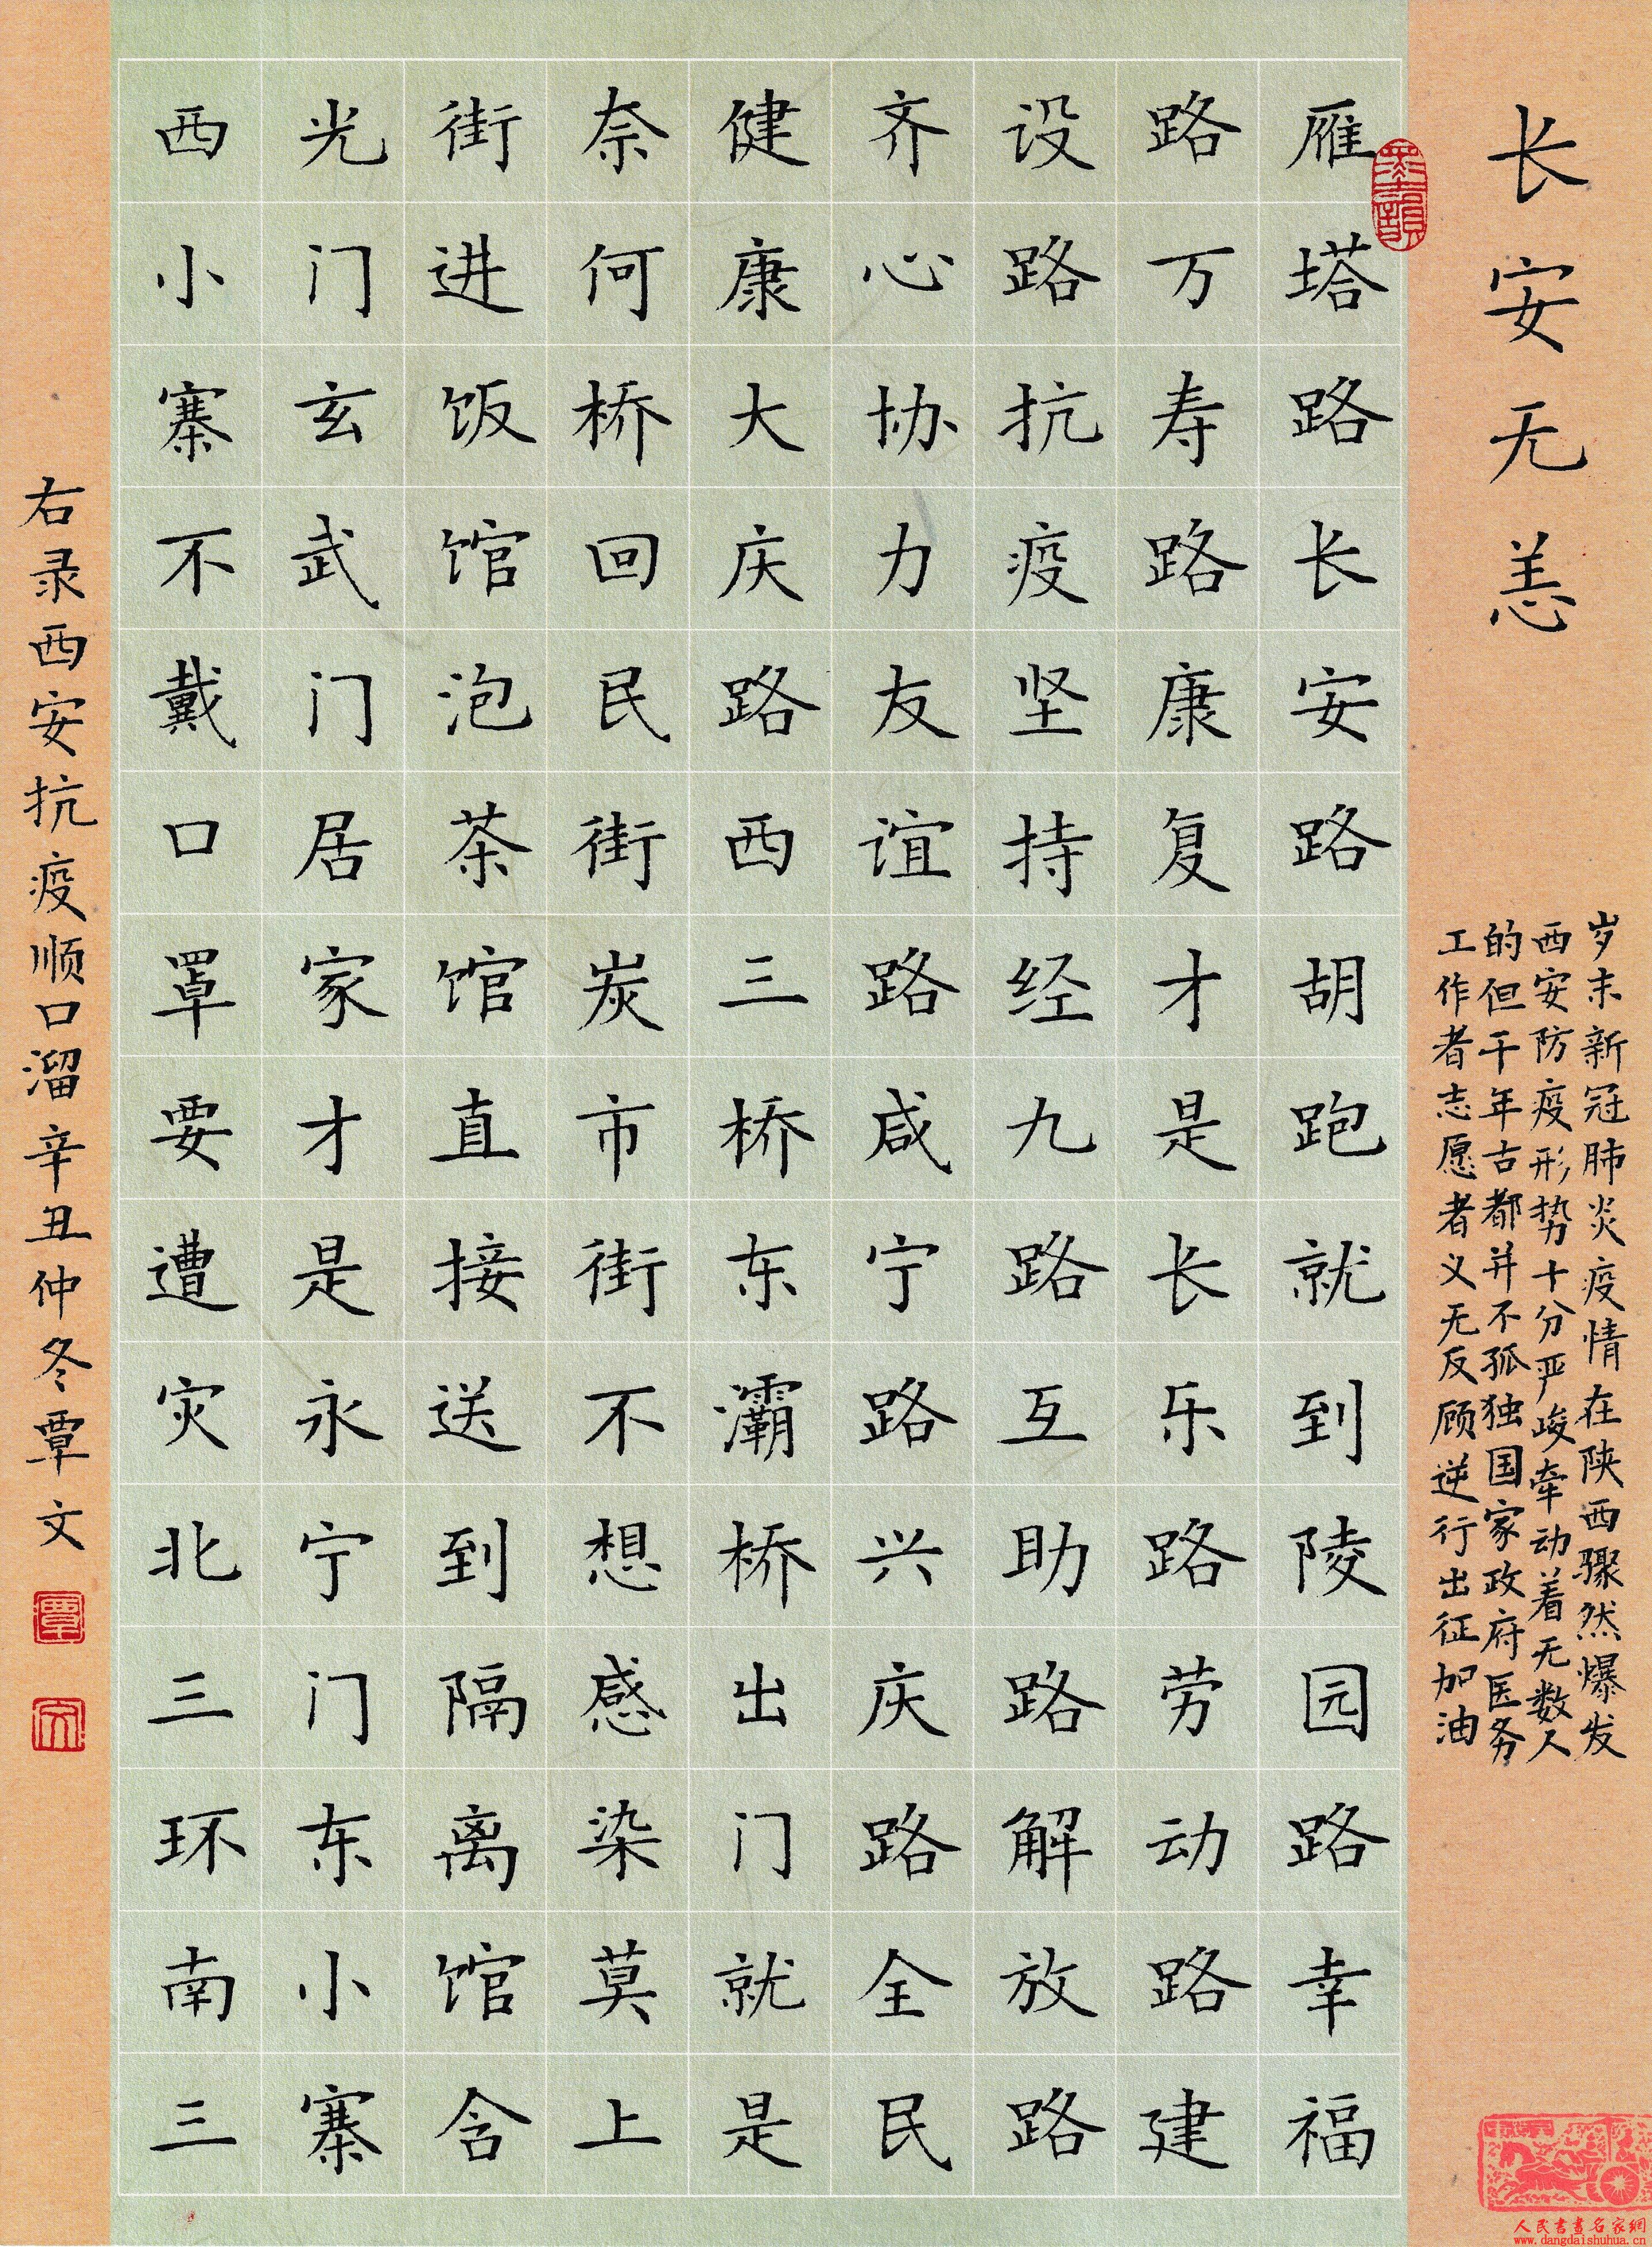 长安无恙
岁末新冠肺炎疫情在陕西骤然爆发
西安防疫形势十分严峻牵动着无数人
的但千年古都并不孤独国家政府医务
工作者志愿者义无反顾逆行出征加油
雁塔路长安路胡跑就到陵园路幸福
路万寿路康复才是长乐路劳动路建
设路抗疫坚持经九路互助路解放路
齐心协力友谊路咸宁路兴庆路全民
健康大庆路西三桥东灞桥出门就是
奈何桥回民街炭市街不想感染莫上
街进饭馆泡茶馆直接送到隔离馆含
光门玄武门居家才是永宁门东小寨
西小寨不戴口罩要遭灾北三环南三
右录西安抗疫顺口溜辛丑仲冬覃文
覃
文
人民书画名家网
www.dangdaishuhua.cn